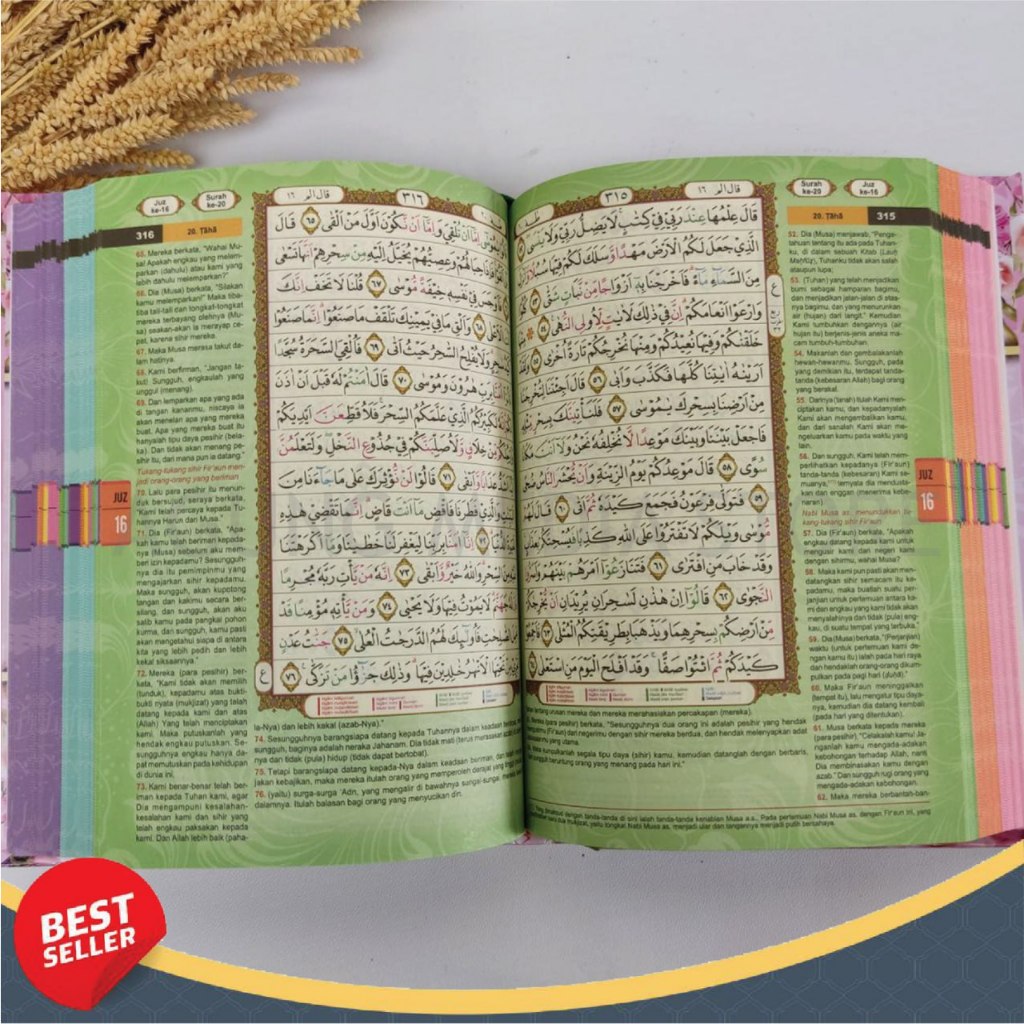 Surah ke-20
Juz ke-16
20. Ṭāhā
315
قال الم ١٦
٣١٥
قَالَ عِلْمُهَا عِنْدَ رَبِّيْ فِيْ كِتٰبٍ لَا يَضِلُّ رَبِّيْ وَلَا يَنْسَى
الَّذِيْ جَعَلَ لَكُمُ الْاَرْضَ مَهْدًا وَّسَلَكَ لَكُمْ فِيْهَا سُبُلًا
مِنَ السَّمَاۤءِ مَاۤءً فَاَخْرَجْنَا بِهٖٓ اَزْوَاجًا مِّنْ نَّبَاتٍ شَتّٰى ٥٣
وَارْعَوْا اَنْعَامَكُمْ اِنَّ فِيْ ذٰلِكَ لَاٰيٰتٍ لِّاُولِى النُّهٰى ٥٤
خَلَقْنٰكُمْ وَفِيْهَا نُعِيْدُكُمْ وَمِنْهَا نُخْرِجُكُمْ تَارَةً اُخْرٰى ٥٥
اَرَيْنٰهُ اٰيٰتِنَا كُلَّهَا فَكَذَّبَ وَاَبٰى ٥٦ قَالَ اَجِئْتَنَا لِتُخْرِجَنَا
مِنْ اَرْضِنَا بِسِحْرِكَ يٰمُوْسٰى ٥٧ فَلَنَأْتِيَنَّكَ بِسِحْرٍ
فَاجْعَلْ بَيْنَنَا وَبَيْنَكَ مَوْعِدًا لَّا نُخْلِفُهٗ نَحْنُ وَلَآ اَنْتَ مَكَانًا
سُوًى ٥٨ قَالَ مَوْعِدُكُمْ يَوْمُ الزِّيْنَةِ وَاَنْ يُّحْشَرَ النَّاسُ
٥٩ فَتَوَلّٰى فِرْعَوْنُ فَجَمَعَ كَيْدَهٗ ثُمَّ اَتٰى ٦٠ قَالَ لَهُمْ
مُّوْسٰى وَيْلَكُمْ لَا تَفْتَرُوْا عَلَى اللّٰهِ كَذِبًا فَيُسْحِتَكُمْ بِعَذَابٍ
وَقَدْ خَابَ مَنِ افْتَرٰى ٦١ فَتَنَازَعُوْٓا اَمْرَهُمْ بَيْنَهُمْ وَاَسَرُّوا
النَّجْوٰى ٦٢ قَالُوْٓا اِنْ هٰذٰنِ لَسٰحِرٰنِ يُرِيْدٰنِ اَنْ يُّخْرِجٰكُمْ
مِّنْ اَرْضِكُمْ بِسِحْرِهِمَا وَيَذْهَبَا بِطَرِيْقَتِكُمُ الْمُثْلٰى ٦٣ فَاَجْمِعُوْا
كَيْدَكُمْ ثُمَّ ائْتُوْا صَفًّا وَقَدْ اَفْلَحَ الْيَوْمَ مَنِ اسْتَعْلٰى
52. Dia (Musa) menjawab, "Penge-
tahuan tentang itu ada pada Tuhan-
ku, di dalam sebuah Kitab (Lauḥ
Maḥfūẓ), Tuhanku tidak akan salah
ataupun lupa;
53. (Tuhan) yang telah menjadikan
bumi sebagai hamparan bagimu,
dan menjadikan jalan-jalan di atas-
nya bagimu, dan yang menurunkan
air (hujan) dari langit." Kemudian
Kami tumbuhkan dengannya (air
hujan itu) berjenis-jenis aneka ma-
cam tumbuh-tumbuhan.
54. Makanlah dan gembalakanlah
hewan-hewanmu. Sungguh, pada
yang demikian itu, terdapat tanda-
tanda (kebesaran Allah) bagi orang
yang berakal.
55. Darinya (tanah) itulah Kami men-
ciptakan kamu, dan kepadanyalah
Kami akan mengembalikan kamu,
dan dari sanalah Kami akan me-
ngeluarkan kamu pada waktu yang
lain.
56. Dan sungguh, Kami telah mem-
perlihatkan kepadanya (Fir'aun)
tanda-tanda (kebesaran) Kami se-
muanya, ternyata dia mendusta-
kan dan enggan (menerima kebe-
naran).
Nabi Musa a.s. menundukkan tu-
kang-tukang sihir Fir'aun
57. Dia (Fir'aun) berkata, "Apakah
engkau datang kepada kami untuk
mengusir kami dari negeri kami
dengan sihirmu, wahai Musa?
58. Maka kami pun pasti akan men-
datangkan sihir semacam itu ke-
padamu, maka buatlah suatu per-
janjian untuk pertemuan antara kami
dan engkau yang kami tidak akan
menyalahinya dan tidak (pula) eng-
kau, di suatu tempat yang terbuka."
59. Dia (Musa) berkata, "(Perjanjian)
waktu (untuk pertemuan kami de-
ngan kamu itu) ialah pada hari raya
dan hendaklah orang-orang dikum-
pulkan pada pagi hari (duha)."
60. Maka Fir'aun meninggalkan
(tempat itu), lalu mengatur tipu daya-
nya, kemudian dia datang kembali
(pada hari yang ditentukan).
61. Musa berkata kepada mereka
(para pesihir), "Celakalah kamu! Ja-
nganlah kamu mengada-adakan
kebohongan terhadap Allah, nanti
Dia membinasakan kamu dengan
azab." Dan sungguh rugi orang yang
mengada-adakan kebohongan.
62. Maka mereka berbantah-ban-
tan tentang urusan mereka dan mereka merahasiakan percakapan (mereka).
Mereka (para pesihir) berkata, "Sesungguhnya dua orang ini adalah pesihir yang hendak
(Fir'aun) dari negerimu dengan sihir mereka berdua, dan hendak melenyapkan adat
yang utama.
kumpulkanlah segala tipu daya (sihir) kamu, kemudian datanglah dengan berbaris,
beruntung orang yang menang pada hari ini."
JUZ
16
Juz ke-16
Surah ke-20
316
20. Ṭāhā
٣١٦
قال الم ١٦
٦٥ قَالَ
٦٧ قُلْنَا لَا تَخَفْ اِنَّكَ
وَاَلْقِ مَا فِيْ يَمِيْنِكَ تَلْقَفْ مَا صَنَعُوْا اِنَّمَا صَنَعُوْا
وَلَا يُفْلِحُ السَّاحِرُ حَيْثُ اَتٰى ٦٩ فَاُلْقِيَ السَّحَرَةُ سُجَّدًا
هٰرُوْنَ وَمُوْسٰى ٧٠ قَالَ اٰمَنْتُمْ لَهٗ قَبْلَ اَنْ اٰذَنَ
الَّذِيْ عَلَّمَكُمُ السِّحْرَ فَلَاُقَطِّعَنَّ اَيْدِيَكُمْ
مِّنْ خِلَافٍ وَّلَاُصَلِّبَنَّكُمْ فِيْ جُذُوْعِ النَّخْلِ وَلَتَعْلَمُنَّ
وَّاَبْقٰى ٧١ قَالُوْا لَنْ نُّؤْثِرَكَ عَلٰى مَا جَاۤءَنَا مِنَ
وَالَّذِيْ فَطَرَنَا فَاقْضِ مَآ اَنْتَ قَاضٍ اِنَّمَا تَقْضِيْ هٰذِهِ
اِنَّآ اٰمَنَّا بِرَبِّنَا لِيَغْفِرَ لَنَا خَطٰيٰنَا وَمَآ اَكْرَهْتَنَا
مِنَ السِّحْرِ وَاللّٰهُ خَيْرٌ وَّاَبْقٰى ٧٣ اِنَّهٗ مَنْ يَّأْتِ رَبَّهٗ مُجْرِمًا
جَهَنَّمَ لَا يَمُوْتُ فِيْهَا وَلَا يَحْيٰى ٧٤ وَمَنْ يَّأْتِهٖ مُؤْمِنًا قَدْ
الصّٰلِحٰتِ فَاُولٰۤىِٕكَ لَهُمُ الدَّرَجٰتُ الْعُلٰى ٧٥ جَنّٰتُ عَدْنٍ
تَحْتِهَا الْاَنْهٰرُ خٰلِدِيْنَ فِيْهَا وَذٰلِكَ جَزٰۤؤُا مَنْ تَزَكّٰى ٧٦
65. Mereka berkata, "Wahai Mu-
sa! Apakah engkau yang melem-
parkan (dahulu) atau kami yang
lebih dahulu melemparkan?"
66. Dia (Musa) berkata, "Silakan
kamu melemparkan!" Maka tiba-
tiba tali-tali dan tongkat-tongkat
mereka terbayang olehnya (Mu-
sa) seakan-akan ia merayap ce-
pat, karena sihir mereka.
67. Maka Musa merasa takut da-
lam hatinya.
68. Kami berfirman, "Jangan ta-
kut! Sungguh, engkaulah yang
unggul (menang).
69. Dan lemparkan apa yang ada
di tangan kananmu, niscaya ia
akan menelan apa yang mereka
buat. Apa yang mereka buat itu
hanyalah tipu daya pesihir (bela-
ka). Dan tidak akan menang pe-
sihir itu, dari mana pun ia datang."
Tukang-tukang sihir Fir'aun men-
jadi orang-orang yang beriman
70. Lalu para pesihir itu merun-
duk bersujud, seraya berkata,
"Kami telah percaya kepada Tu-
hannya Harun dan Musa."
71. Dia (Fir'aun) berkata, "Apa-
kah kamu telah beriman kepada-
nya (Musa) sebelum aku mem-
beri izin kepadamu? Sesungguh-
nya dia itu pemimpinmu yang
mengajarkan sihir kepadamu.
Maka sungguh, akan kupotong
tangan dan kakimu secara ber-
silang, dan sungguh, akan aku
salib kamu pada pangkal pohon
kurma, dan sungguh, kamu pasti
akan mengetahui siapa di antara
kita yang lebih pedih dan lebih
kekal siksaannya."
72. Mereka (para pesihir) ber-
kata, "Kami tidak akan memilih
(tunduk), kepadamu atas bukti-
bukti nyata (mukjizat) yang telah
datang kepada kami dan atas
(Allah) Yang telah menciptakan
kami. Maka putuskanlah yang
hendak engkau putuskan. Se-
sungguhnya engkau hanya da-
pat memutuskan pada kehidupan
di dunia ini.
73. Kami benar-benar telah ber-
iman kepada Tuhan kami, agar
Dia mengampuni kesalahan-
kesalahan kami dan sihir yang
telah engkau paksakan kepada
kami. Dan Allah lebih baik (paha-
la-Nya) dan lebih kekal (azab-Nya).
74. Sesungguhnya barangsiapa datang kepada Tuhannya dalam keadaan berdosa, maka
sungguh, baginya adalah neraka Jahanam. Dia tidak mati (terus merasakan azab)
dan tidak (pula) hidup (tidak dapat bertobat).
75. Tetapi barangsiapa datang kepada-Nya dalam keadaan beriman, dan telah
kebajikan, maka mereka itulah orang yang memperoleh derajat yang tinggi
76. (yaitu) surga-surga 'Adn, yang mengalir di bawahnya sungai-sungai,
dalamnya. Itulah balasan bagi orang yang menyucikan diri.
JUZ
16
BEST
SELLER